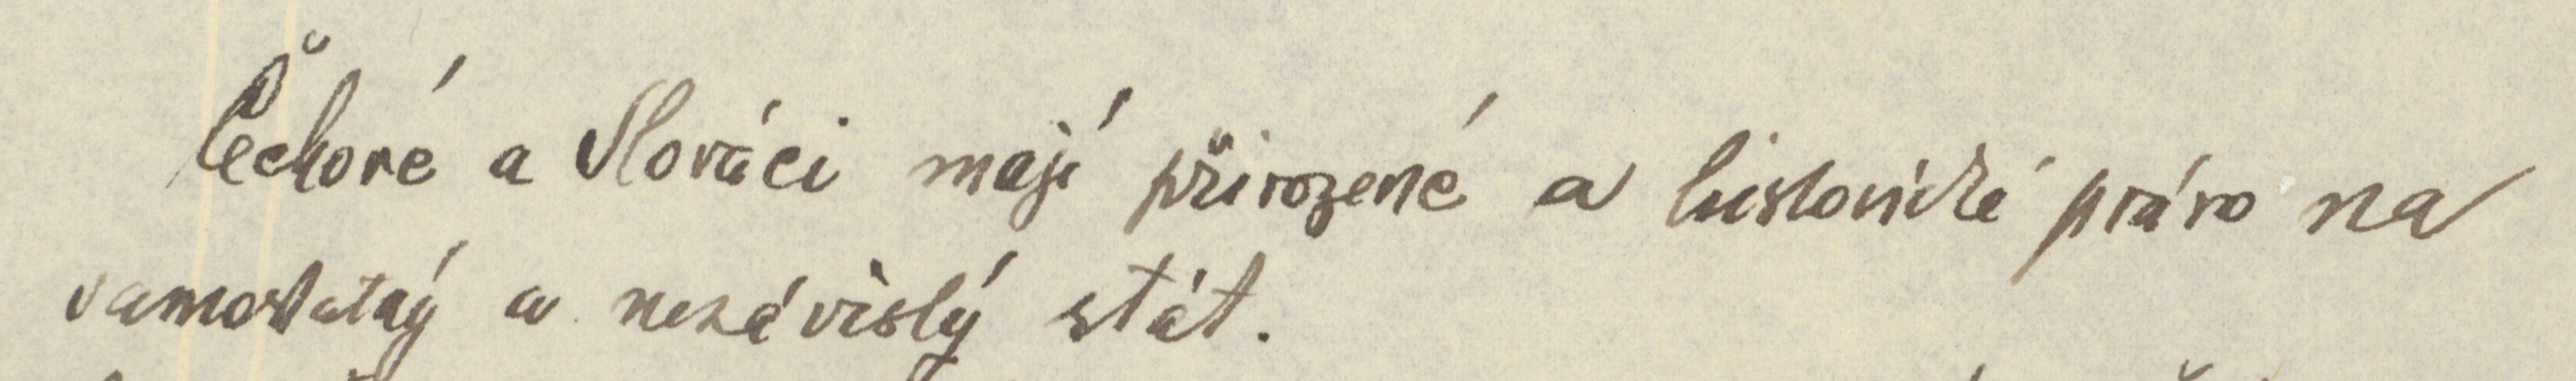 Čechové a Slováci mají přirozené a historické právo na
samostatný a nezávislý stát.